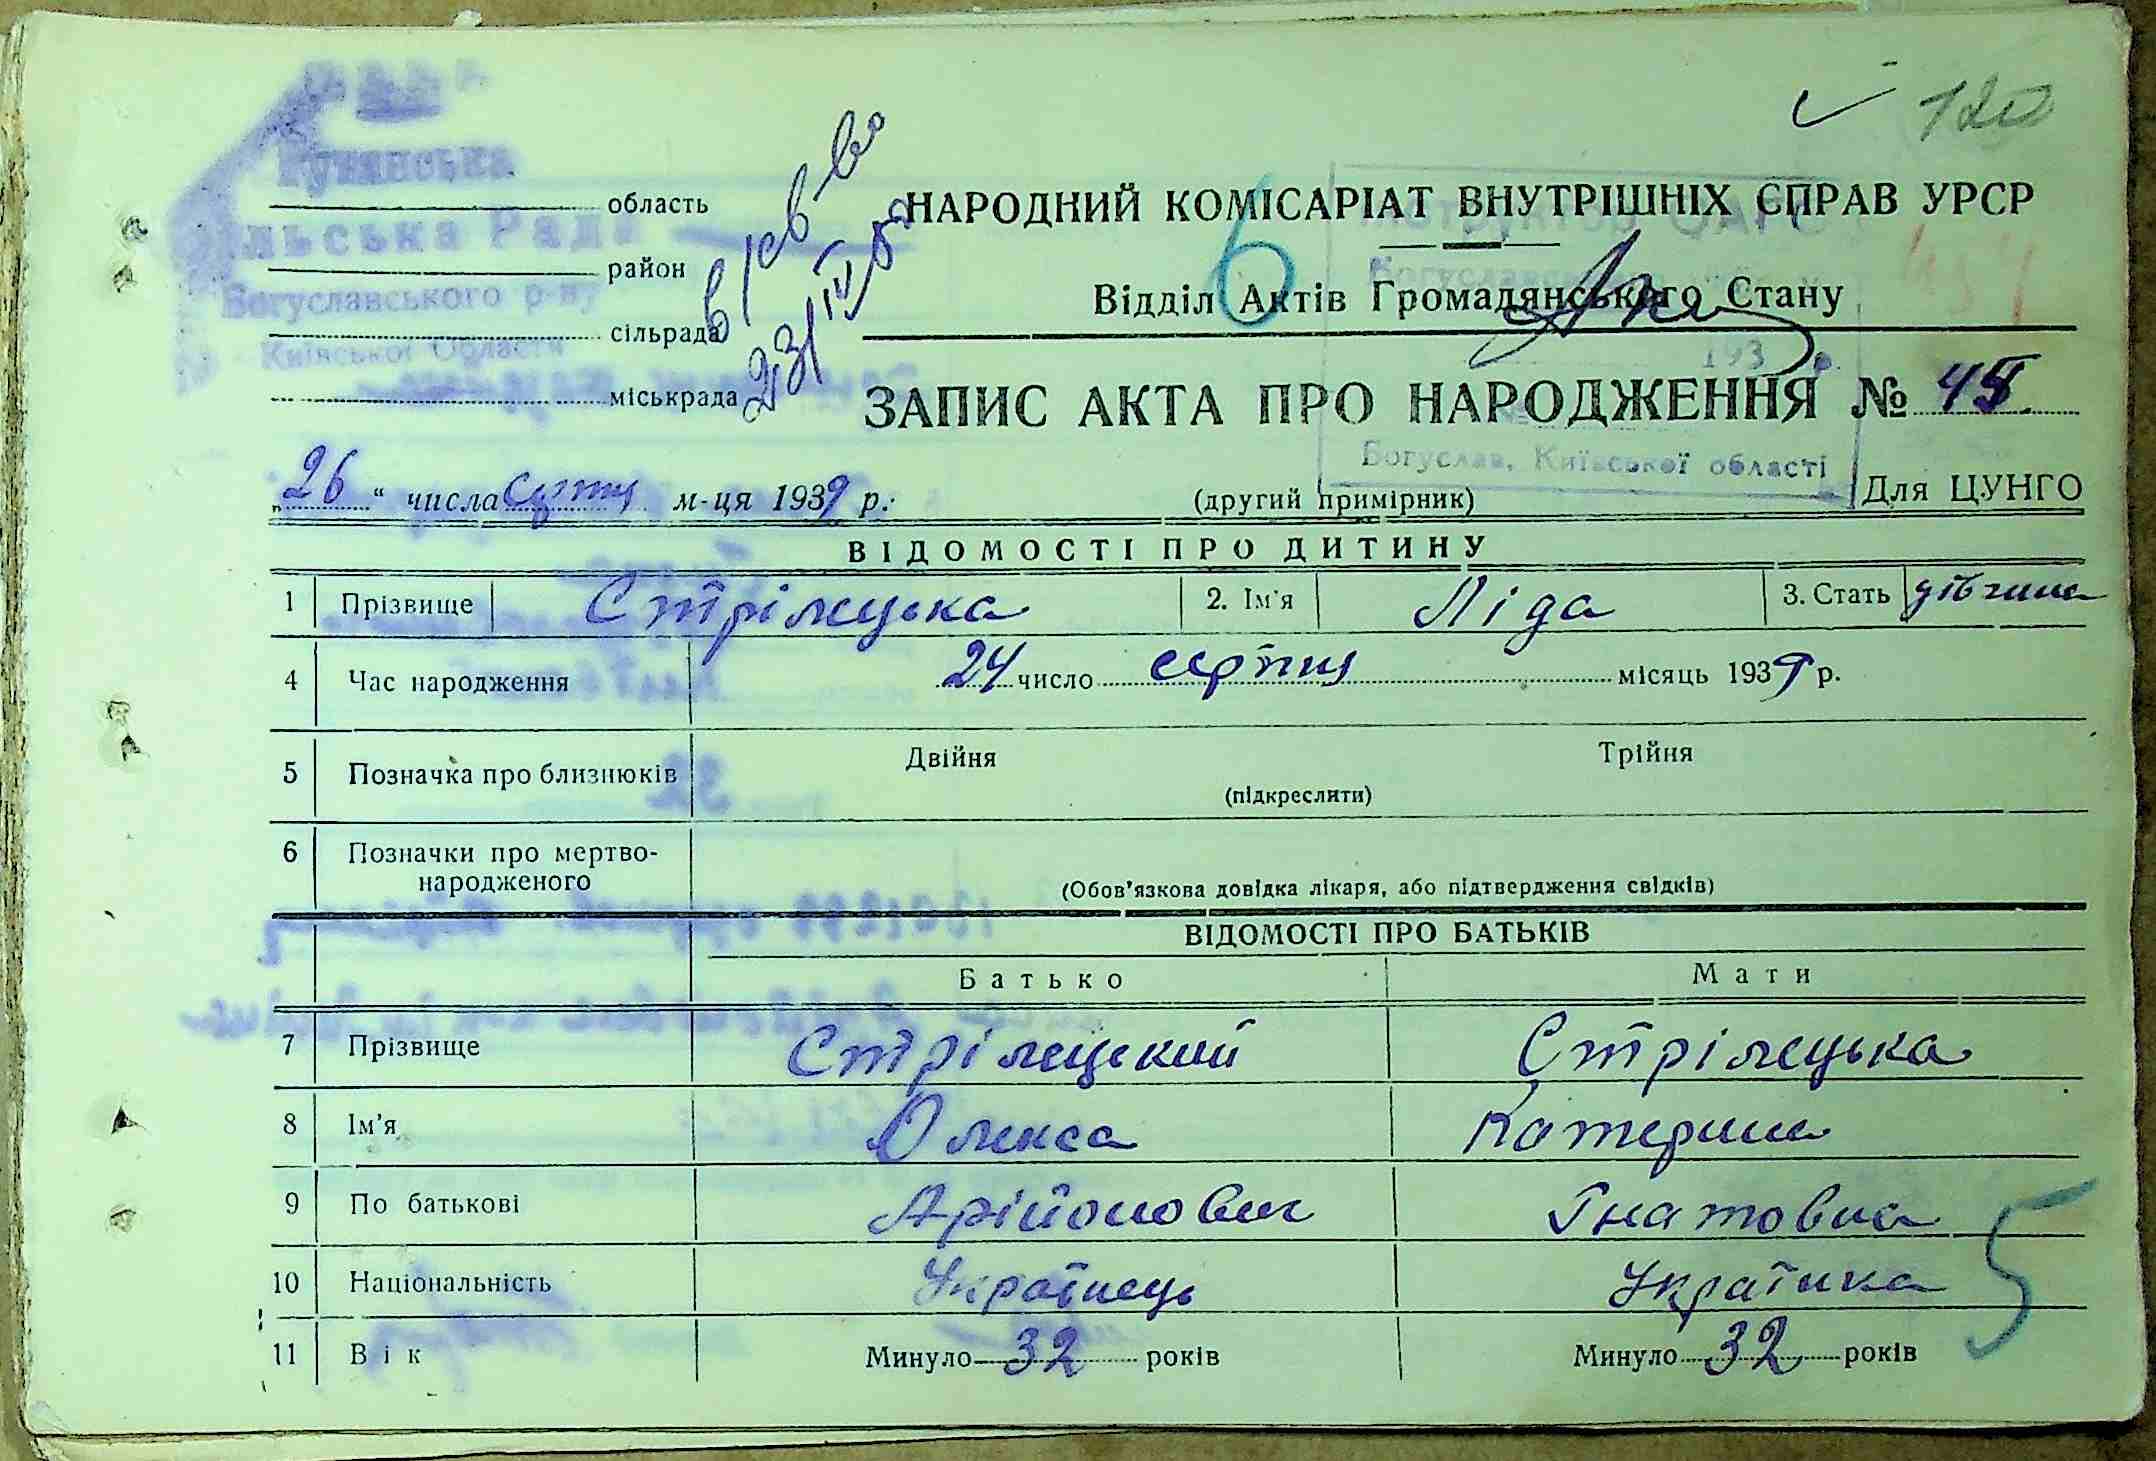 120
область
район
сільрада
міськрада
льська Рада
Богуславського р-ну
Київської Области
НАРОДНИЙ КОМІСАРІАТ ВНУТРІШНІХ СПРАВ УРСР
6
Відділ Актів Громадянського Стану
193 р.
ЗАПИС АКТА ПРО НАРОДЖЕННЯ №
Богуслав, Київської області
„26“ числа серпня м-ця 1939 р.
(другий примірник)
Для ЦУНГО
ВІДОМОСТІ ПРО ДИТИНУ
1 Прізвище Стрілецька 2. Ім'я Ліда 3. Стать дівчина
4 Час народження 24 число серпня місяць 1939 р.
5 Позначка про близнюків Двійня Трійня
(підкреслити)
6 Позначки про мертво-
народженого (Обов'язкова довідка лікаря, або підтвердження свідків)
ВІДОМОСТІ ПРО БАТЬКІВ
Батько Мати
7 Прізвище Стрілецький Стрілецька
8 Ім'я Олекса Катерина
9 По батькові Арійонович Гнатовна
10 Національність Українець Українка
5
11 Вік Минуло 32 років Минуло 32 років